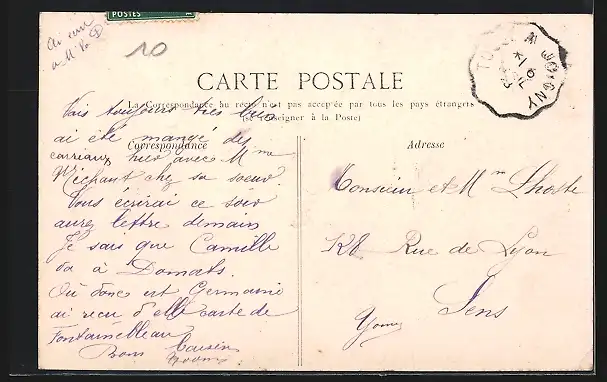 POSTES
10
A JOIGNY
CARTE POSTALE
La Correspondance au recto n'est pas acceptée par tous les pays étrangers
(se renseigner à la Poste)
Correspondance
Vais toujours très bien
ai été mangé des
carreaux hier avec Mme
Michaut chez sa soeur.
Vous écrirai ce soir
aurez lettre demain
Je sais que Camille
va à Domats.
Où donc est Germaine
ai reçu d'elle carte de
Fontainebleau
Bons baisers
Adresse
Monsieur et Mme Lhoste
128 Rue de Lyon
Sens
Yonne